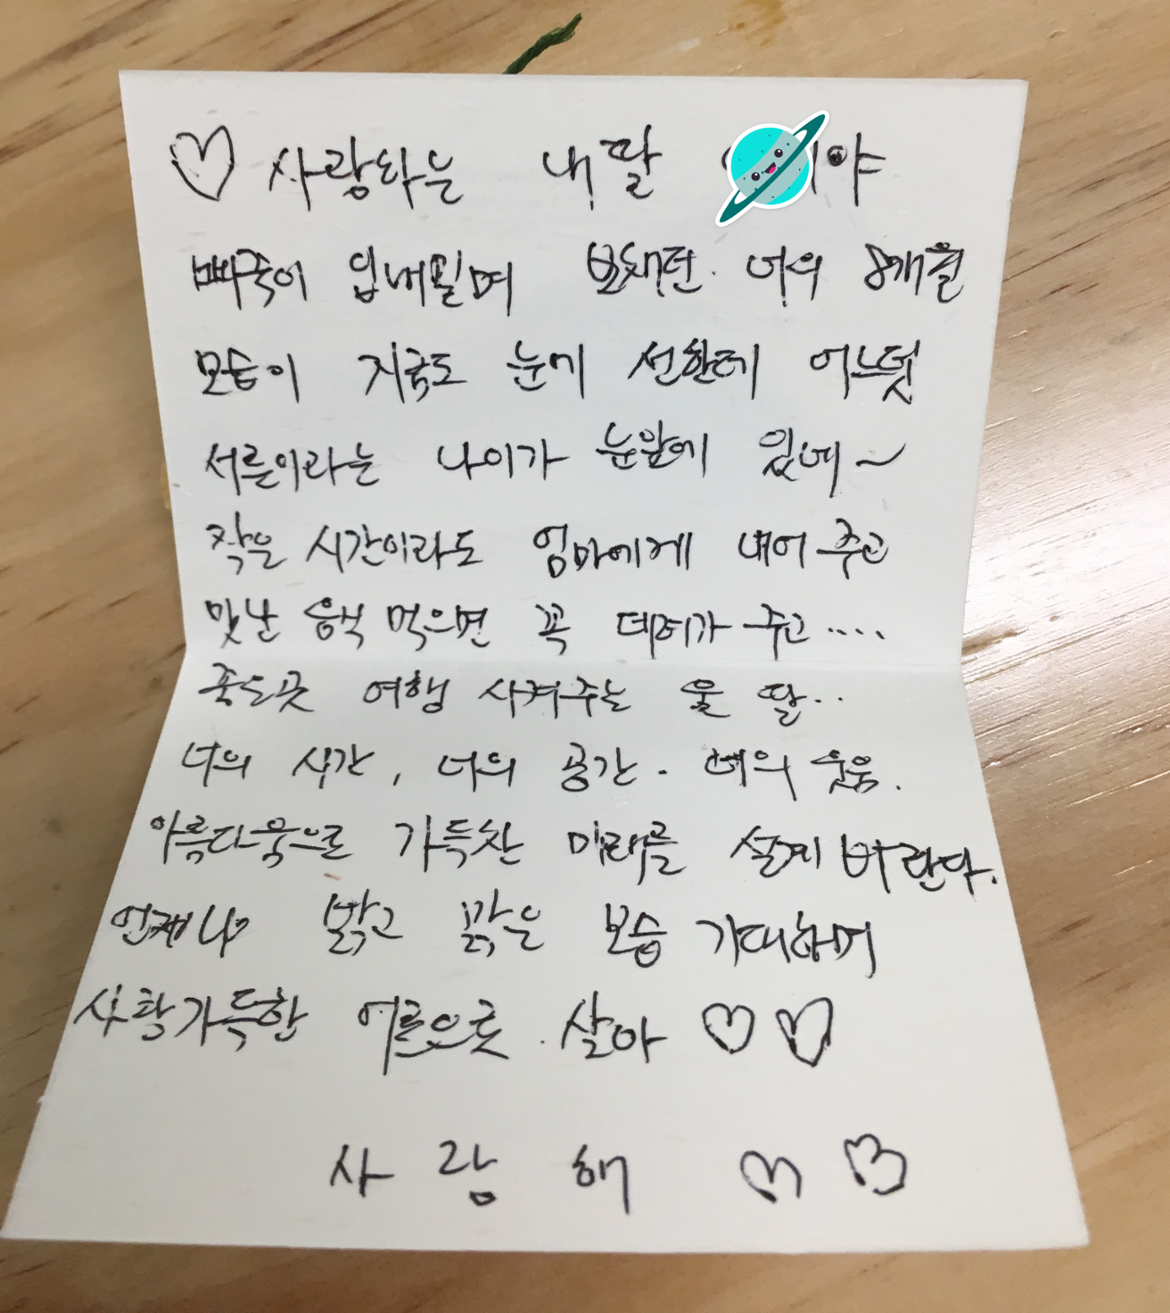 ♡ 사랑하는 내 딸 야
삐죽이 입 내밀며 보채던. 너의 8개월
모습이 지금도 눈에 선한데 어느덧
서른이라는 나이가 눈앞에 있네~
작은 시간이라도 엄마에게 내어 주고
맛난 음식 먹으면 꼭 데려가 주고....
좋은곳 여행 시켜주는 울 딸..
너의 시간, 너의 공간. 너의 웃음.
아름다움으로 가득찬 미래를 설계 바란다.
언제나 밝고 맑은 모습 기대하며
사랑가득한 어른으로. 살아 ♡♡
사 랑 해 ♡ ♡